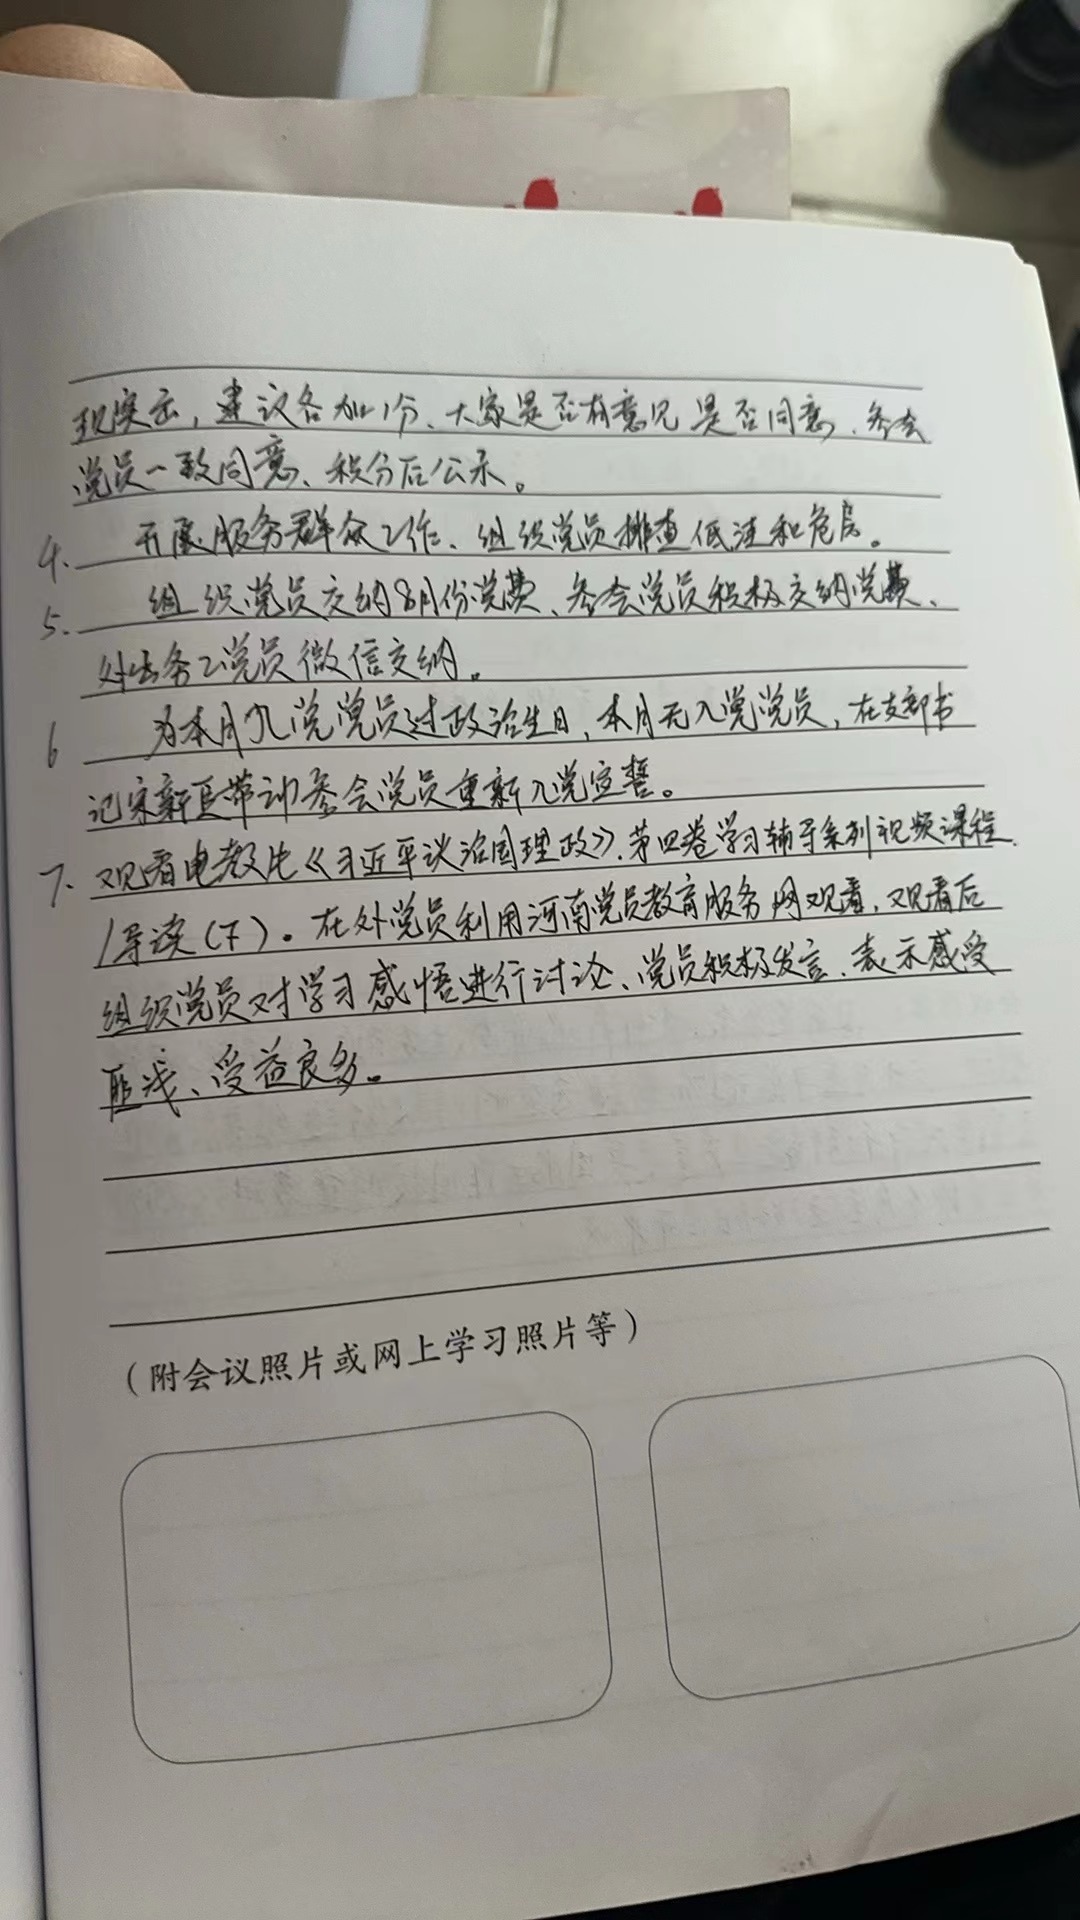 现突出，建议各加1分、大家是否有意见是否同意、参会
党员一致同意、积分后公示。
4. 开展服务群众工作、组织党员排查低洼和危房。
5. 组织党员交纳8月份党费、参会党员积极交纳党费、
对出务工党员微信交纳。
6 为本月入党党员过政治生日，本月无入党党员，在支部书
记宋新臣带动参会党员重新入党宣誓。
7. 观看电教片《习近平谈治国理政》.第四卷学习辅导系列视频课程
/导读(下)。在外党员利用河南党员教育服务网观看，观看后
组织党员对学习感悟进行讨论、党员积极发言、表示感受
匪浅、受益良多。
（附会议照片或网上学习照片等）